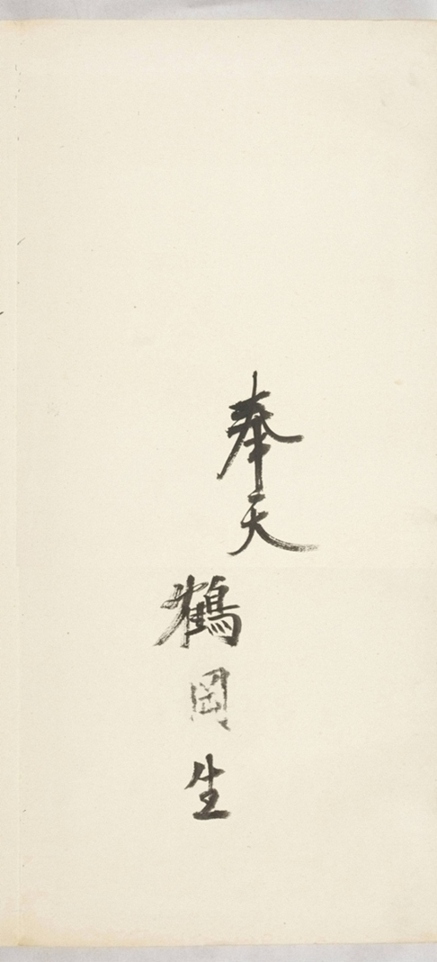 奉天
鶴岡生